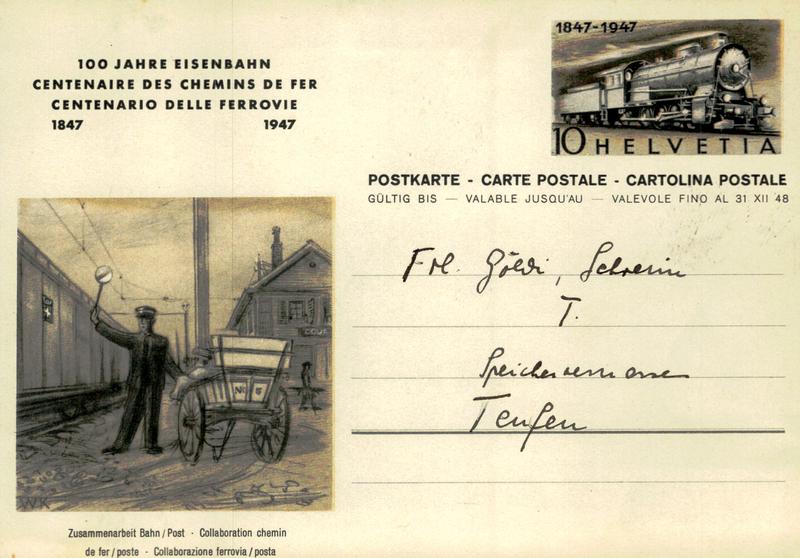 100 JAHRE EISENBAHN
CENTENAIRE DES CHEMINS DE FER
CENTENARIO DELLE FERROVIE
1847 1947
1847-1947
10 HELVETIA
POSTKARTE - CARTE POSTALE - CARTOLINA POSTALE
GÜLTIG BIS — VALABLE JUSQU'AU — VALEVOLE FINO AL 31 XII 48
Frl. Göldi,
T.
Teufen
No 6
WK
Zusammenarbeit Bahn / Post · Collaboration chemin
de fer / poste · Collaborazione ferrovia / posta